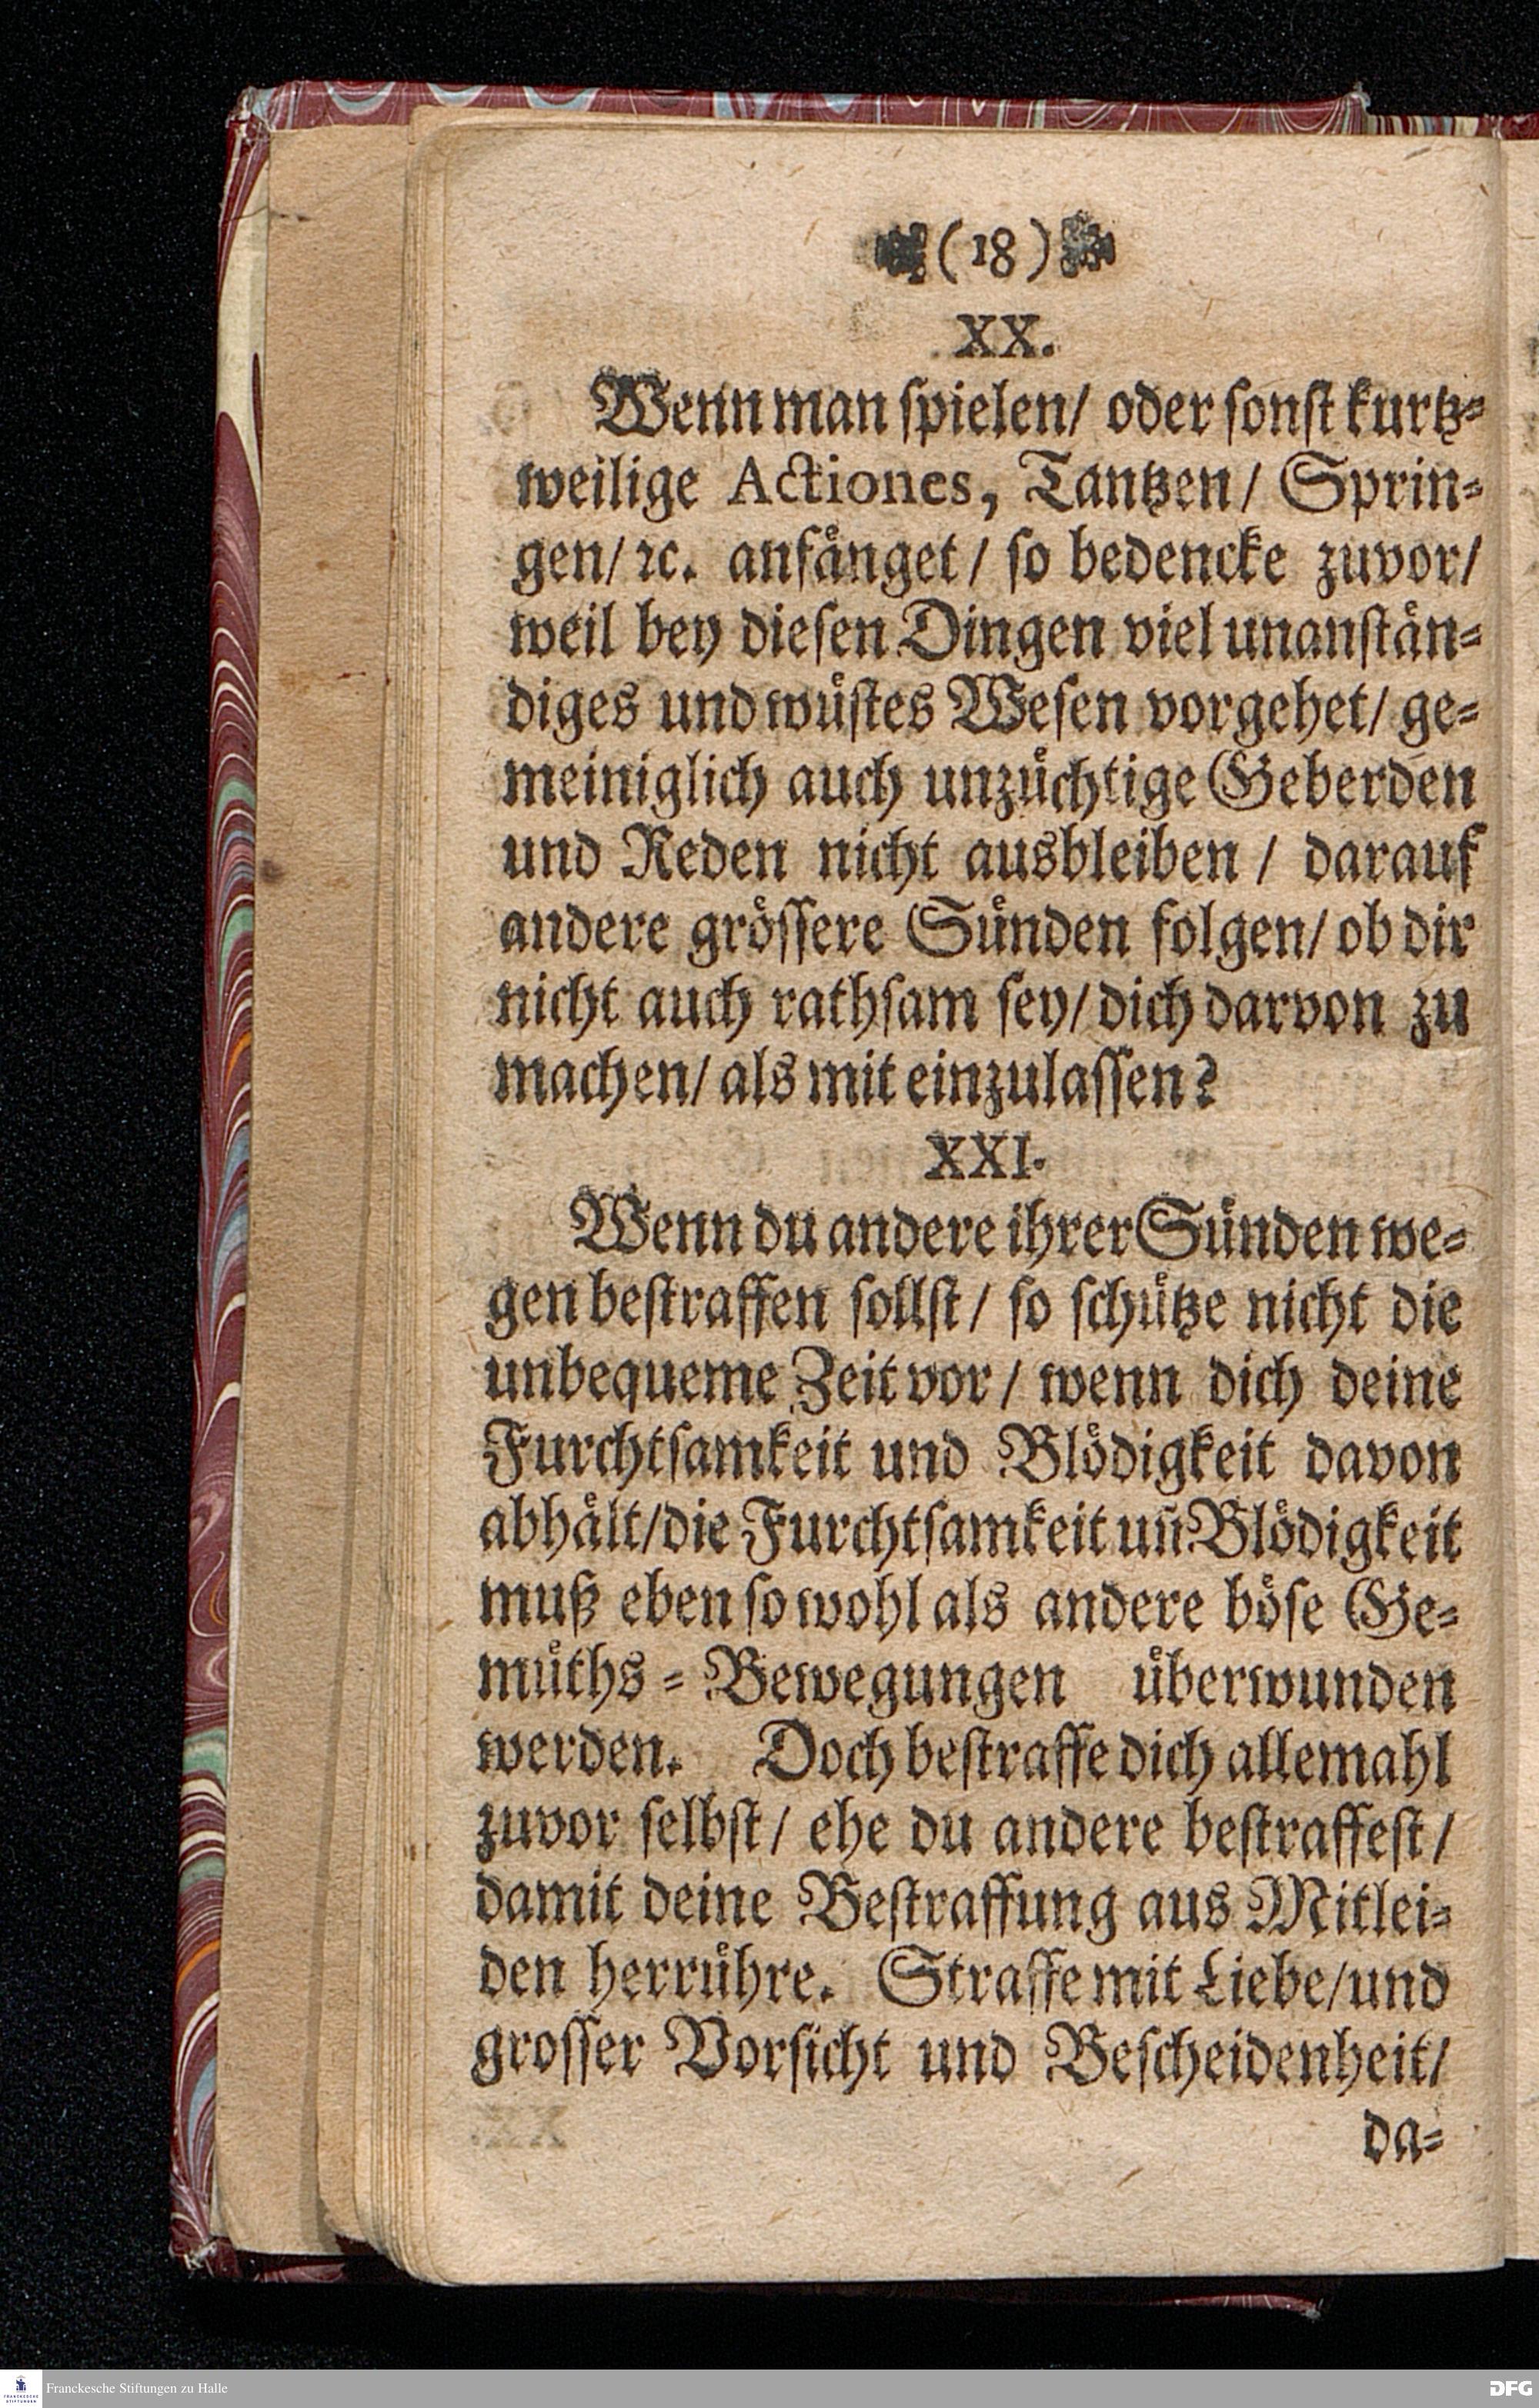 (18)
XX.
Wenn man spielen/ oder sonst kurtz-
weilige Actiones, Tantzen/ Sprin-
gen/ ꝛc. anfänget/ so bedencke zuvor/
weil bey diesen Dingen viel unanstän-
diges und wüstes Wesen vorgehet/ ge-
meiniglich auch unzüchtige Geberden
und Reden nicht ausbleiben/ darauf
andere grössere Sünden folgen/ ob dir
nicht auch rathsam sey/ dich darvon zu
machen/ als mit einzulassen?
XXI.
Wenn du andere ihrer Sünden we-
gen bestraffen sollst/ so schütze nicht die
unbequeme Zeit vor/ wenn dich deine
Furchtsamkeit und Blödigkeit davon
abhält/ die Furchtsamkeit uñ Blödigkeit
muß eben so wohl als andere böse Ge-
müths-Bewegungen überwunden
werden. Doch bestraffe dich allemahl
zuvor selbst/ ehe du andere bestraffest/
damit deine Bestraffung aus Mitlei-
den herrühre. Straffe mit Liebe/ und
grosser Vorsicht und Bescheidenheit/
da-
Franckesche Stiftungen zu Halle
FRANCKESCHE
STIFTUNGEN
DFG